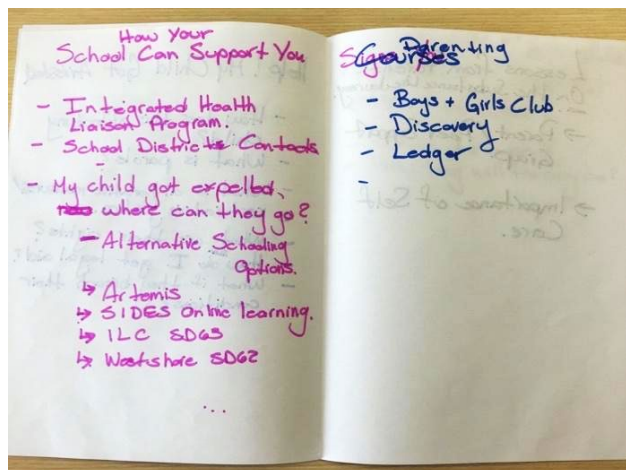 How Your
School Can Support You
- Integrated Health
Liaison Program.
- School District Contacts
-
- My child got expelled,
where can they go?
- Alternative Schooling
Options.
↳ Artemis
↳ SIDES Online learning.
↳ ILC SD63
↳ Westshore SD62
...
Parenting
Courses
- Boys + Girls Club
- Discovery
- Ledger
-